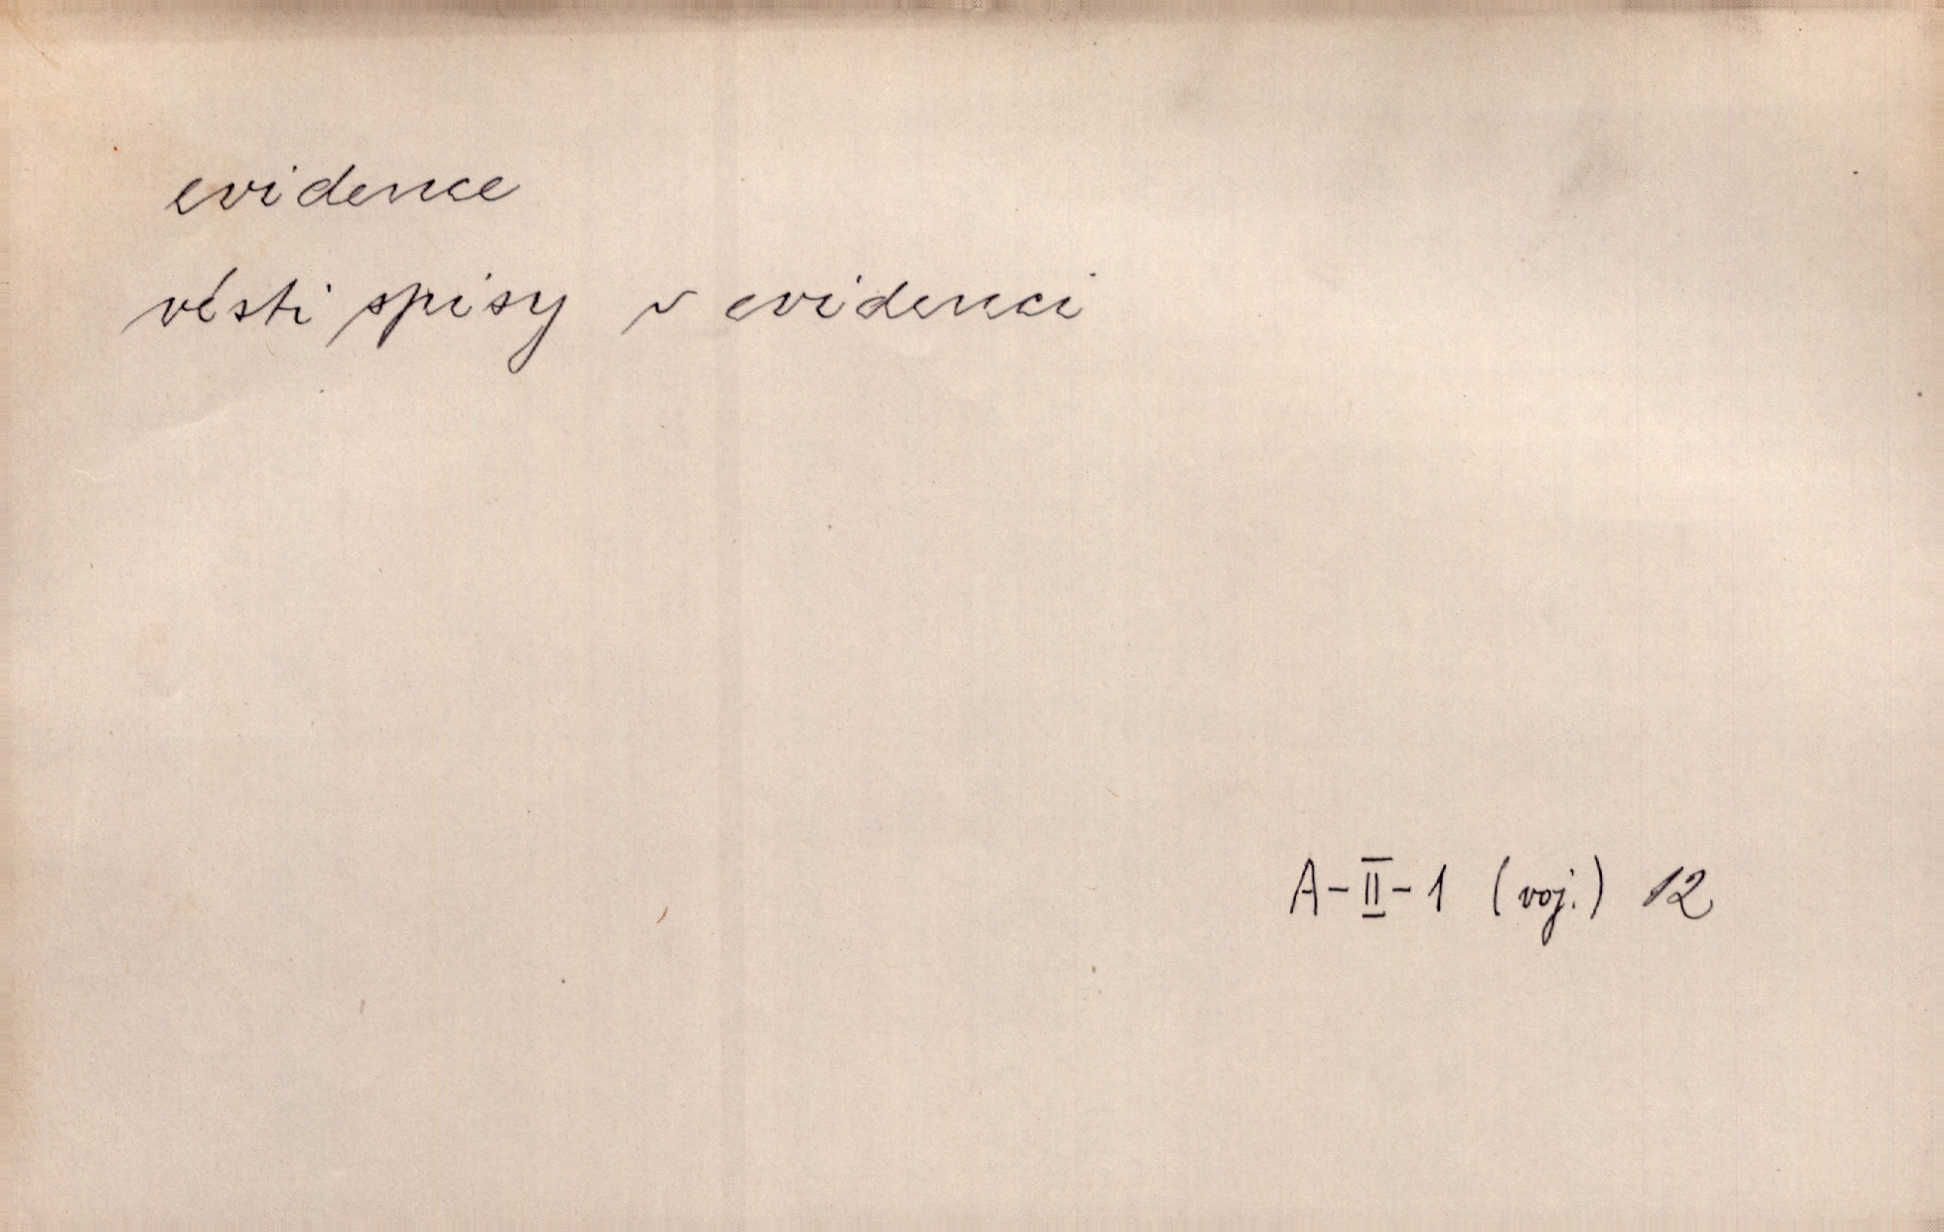 evidence
vésti spisy v evidenci
A-II-1 (voj.) 12